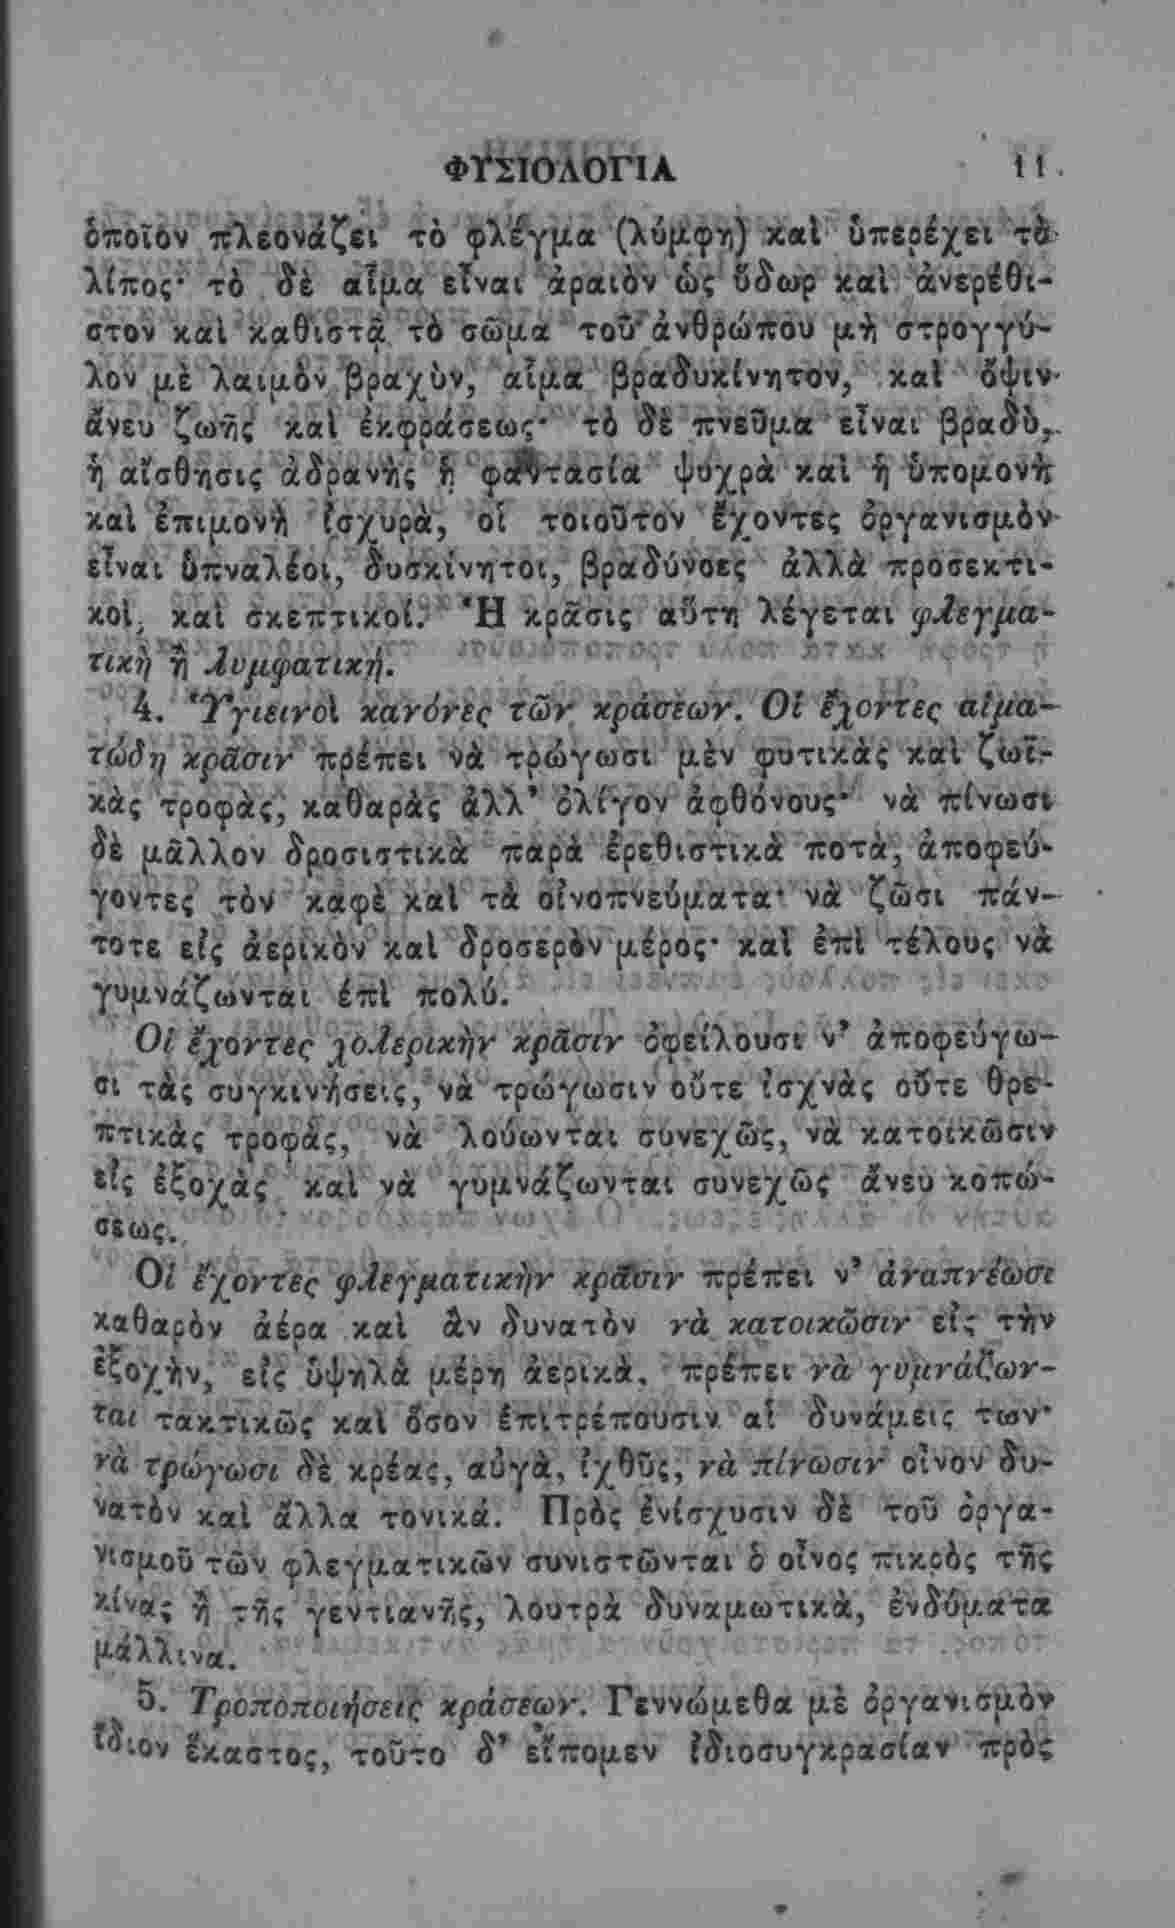 ΦΥΣΙΟΛΟΓΙΑ 11
ὁποῖον πλεονάζει τὸ φλέγμα (λύμφη) καὶ ὑπερέχει τὸ
λίπος· τὸ δὲ αἷμα εἶναι ἀραιὸν ὡς ὕδωρ καὶ ἀνερέθι-
στον καὶ καθιστᾷ τὸ σῶμα τοῦ ἀνθρώπου μὴ στρογγύ-
λον μὲ λαιμὸν βραχὺν, αἷμα βραδυκίνητον, καὶ ὄψιν
ἄνευ ζωῆς καὶ ἐκφράσεως· τὸ δὲ πνεῦμα εἶναι βραδὺ,
ἡ αἴσθησις ἀδρανὴς ἡ φαντασία ψυχρὰ καὶ ἡ ὑπομονὴ
καὶ ἐπιμονὴ ἰσχυρὰ, οἱ τοιοῦτον ἔχοντες ὀργανισμὸν
εἶναι ὑπναλέοι, δυσκίνητοι, βραδύνοες ἀλλὰ προσεκτι-
κοὶ, καὶ σκεπτικοί. Ἡ κρᾶσις αὕτη λέγεται φλεγμα-
τικὴ ἢ λυμφατικὴ.
4. Ὑγιεινοὶ κανόνες τῶν κράσεων. Οἱ ἔχοντες αἱμα-
τώδη κρᾶσιν πρέπει νὰ τρώγωσι μὲν φυτικὰς καὶ ζωϊ-
κὰς τροφὰς, καθαρὰς ἀλλ' ὀλίγον ἀφθόνους· νὰ πίνωσι
δὲ μᾶλλον δροσιστικὰ παρὰ ἐρεθιστικὰ ποτὰ, ἀποφεύ-
γοντες τὸν καφὲ καὶ τὰ οἰνοπνεύματα· νὰ ζῶσι πάν-
τοτε εἰς ἀερικὸν καὶ δροσερὸν μέρος· καὶ ἐπὶ τέλους νὰ
γυμνάζωνται ἐπὶ πολύ.
Οἱ ἔχοντες χολερικὴν κρᾶσιν ὀφείλουσι ν' ἀποφεύγω-
σι τὰς συγκινήσεις, νὰ τρώγωσιν οὔτε ἰσχνὰς οὔτε θρε-
πτικὰς τροφὰς, νὰ λούωνται συνεχῶς, νὰ κατοικῶσιν
εἰς ἐξοχὰς καὶ νὰ γυμνάζωνται συνεχῶς ἄνευ κοπώ-
σεως.
Οἱ ἔχοντες φλεγματικὴν κρᾶσιν πρέπει ν' ἀναπνέωσι
καθαρὸν ἀέρα καὶ ἂν δυνατὸν νὰ κατοικῶσιν εἰς τὴν
ἐξοχὴν, εἰς ὑψηλὰ μέρη ἀερικὰ, πρέπει νὰ γυμνάζων-
ται τακτικῶς καὶ ὅσον ἐπιτρέπουσιν αἱ δυνάμεις των·
νὰ τρώγωσι δὲ κρέας, αὐγὰ, ἰχθῦς, νὰ πίνωσιν οἶνον δυ-
νατὸν καὶ ἄλλα τονικά. Πρὸς ἐνίσχυσιν δὲ τοῦ ὀργα-
νισμοῦ τῶν φλεγματικῶν συνιστῶνται ὁ οἶνος πικρὸς τῆς
κίνας ἢ τῆς γεντιανῆς, λουτρὰ δυναμωτικὰ, ἐνδύματα
μάλλινα.
5. Τροποποιήσεις κράσεων. Γεννώμεθα μὲ ὀργανισμὸν
ἴδιον ἕκαστος, τοῦτο δ' εἴπομεν ἰδιοσυγκρασίαν πρὸς